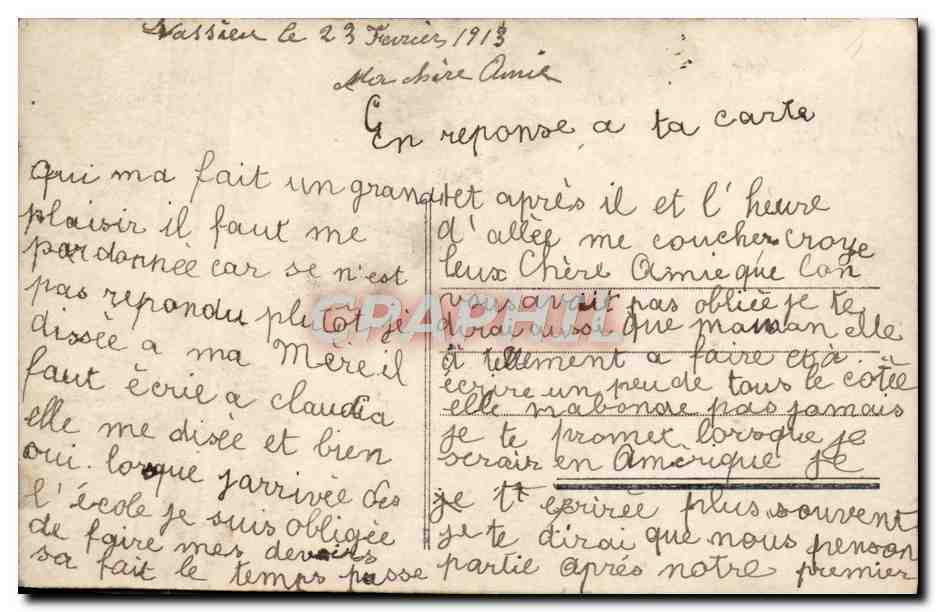 Vassieu le 23 Fevrier 1913
Ma chère Amie
En reponse a ta carte
qui ma fait un grand
plaisir il faut me
pardonnée car se n'est
pas repondu plutot je
dissée a ma Mere il
faut écrie a claudia
elle me disée et bien
oui. lorsque jarrivée des
l'école je suis obligée
de faire mes devoirs
sa fait le temps passe
et après il et l'heure
d'allée me coucher croye
leux Chère Amie que lon
vous avait pas obliée je te
dirai aussi que maman elle
a tellement a faire et à
écrire un peu de tous le cotée
elle mabonde pas jamais
je te promet lorsque je
serair en Amerique je
je tt eprirée plus souvent
je te dirai que nous penson
partie après notre premier
GRAPHIL